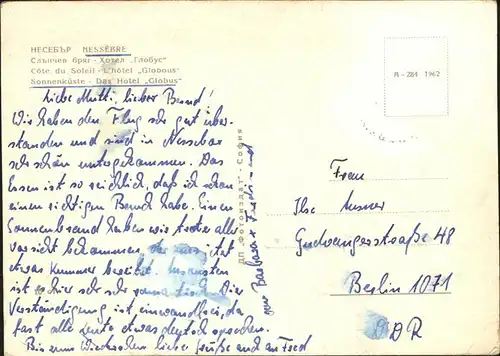 НЕСЕБЪР MESSÈBRE
Слънчев бряг - Хотел „Глобус"
Côte du Soleil - L'hôtel „Globous"
Sonnenküste - Das Hotel „Globus"
Liebe Mutti, lieber Bernd!
Wir haben den Flug sehr gut über-
standen und sind in Nessebar
sehr schön untergekommen. Das
Essen ist so reichlich, daß ich schon
einen richtigen Bauch habe. Einen
Sonnenbrand haben wir trotz aller
Vorsicht bekommen, der uns
etwas Kummer bereitet. Ansonsten
ist es hier sehr romantisch. Die
Verständigung ist einwandfrei, da
fast alle Leute etwas deutsch sprechen.
Bis zum Wiedersehen liebe Grüße
Barbara +
ДП „Фотоиздат" - София
А - 281 1962
Frau
Ilse
Gudvangerstraße 48
Berlin 1071
DDR